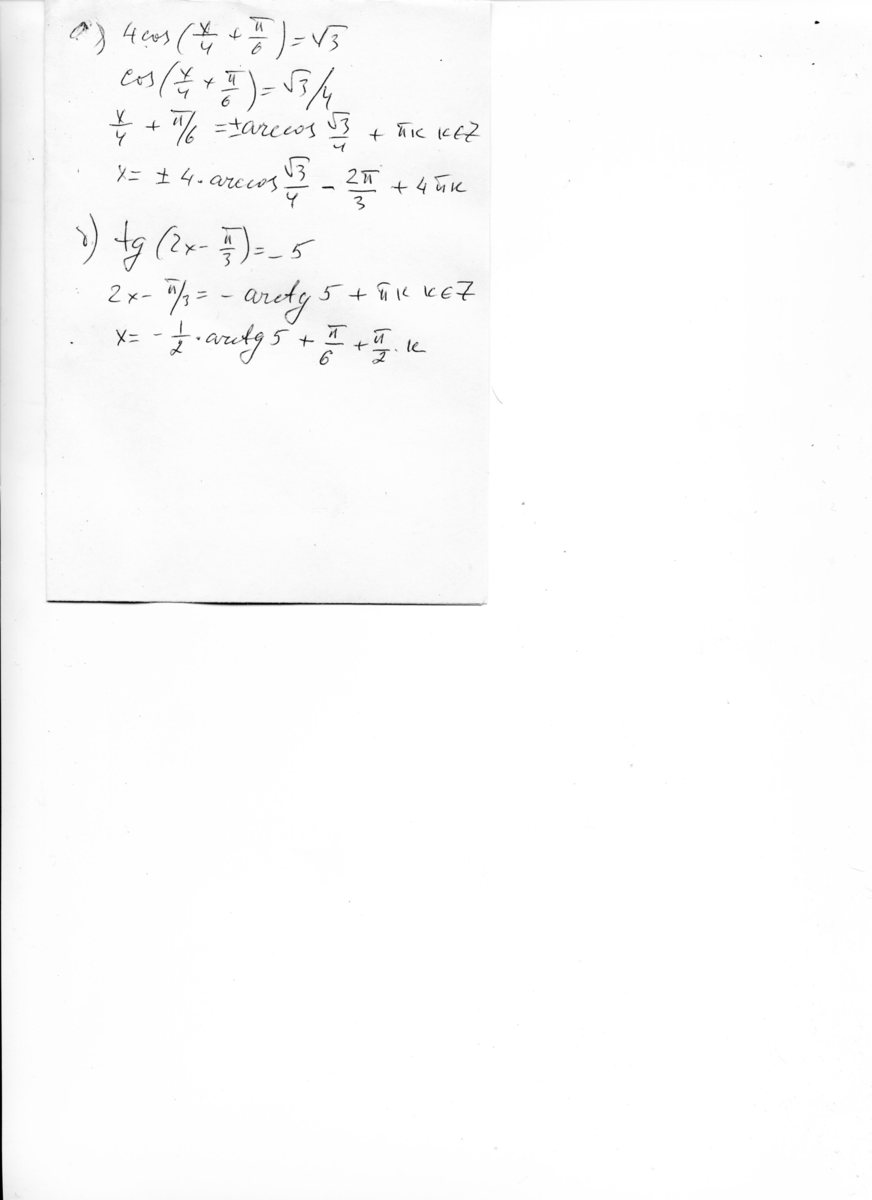 а) 4cos(x/4 + π/6) = √3
cos(x/4 + π/6) = √3/4
x/4 + π/6 = ± arccos √3/4 + πк к∈Z
x = ± 4 · arccos √3/4 - 2π/3 + 4πк
б) tg(2x - π/3) = -5
2x - π/3 = - arctg 5 + πк к∈Z
x = - 1/2 · arctg 5 + π/6 + π/2 · к